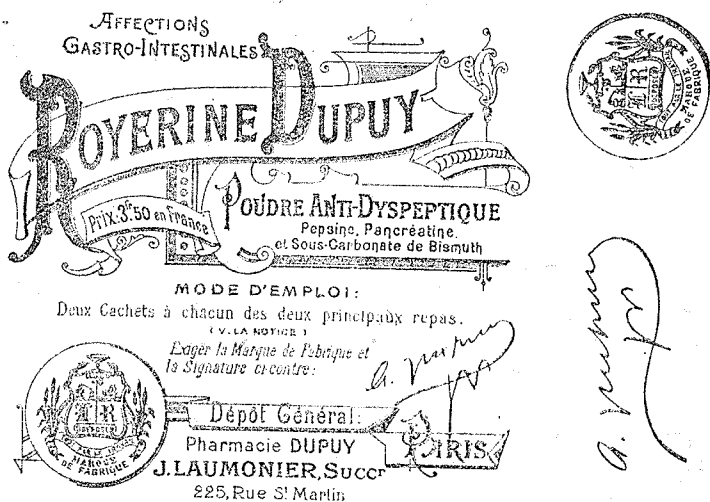 AFFECTIONS
GASTRO-INTESTINALES
ROYERINE DUPUY
Prix: 3fr50 en France
POUDRE ANTI-DYSPEPTIQUE
Pepsine, Pancréatine,
et Sous-Carbonate de Bismuth
MODE D'EMPLOI:
Deux Cachets à chacun des deux principaux repas.
(V. LA NOTICE)
Exiger la Marque de Fabrique et
la Signature ci-contre:
A. Dupuy
Dépôt Général:
PARIS
Pharmacie DUPUY
J. LAUMONIER, Succr
225, Rue St Martin
MARQUE
DE FABRIQUE
MARQUE
DE FABRIQUE
A. Dupuy